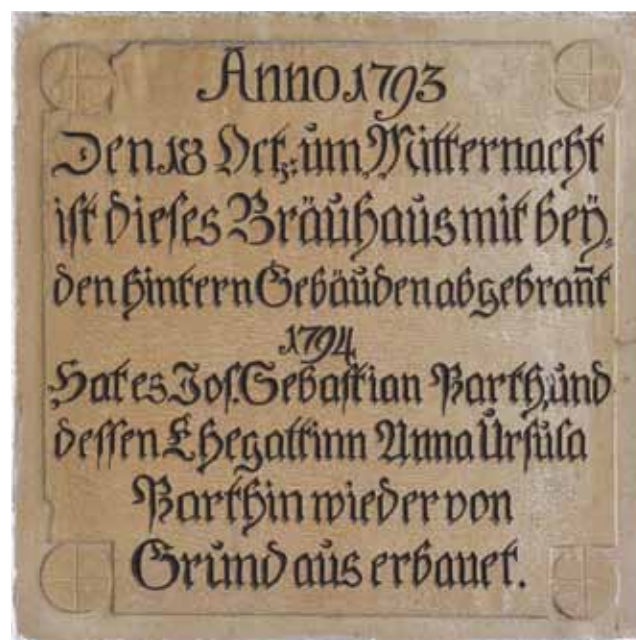 Anno 1793
Den 18 Oct: um Mitternacht
ist dieses Bräuhaus mit beÿ-
den hintern Gebäuden abgebran̄t
1794
Hat es Jos. Sebastian Barth, und
dessen Ehegattinn Anna Ursula
Barthin wieder von
Grund aus erbauet.